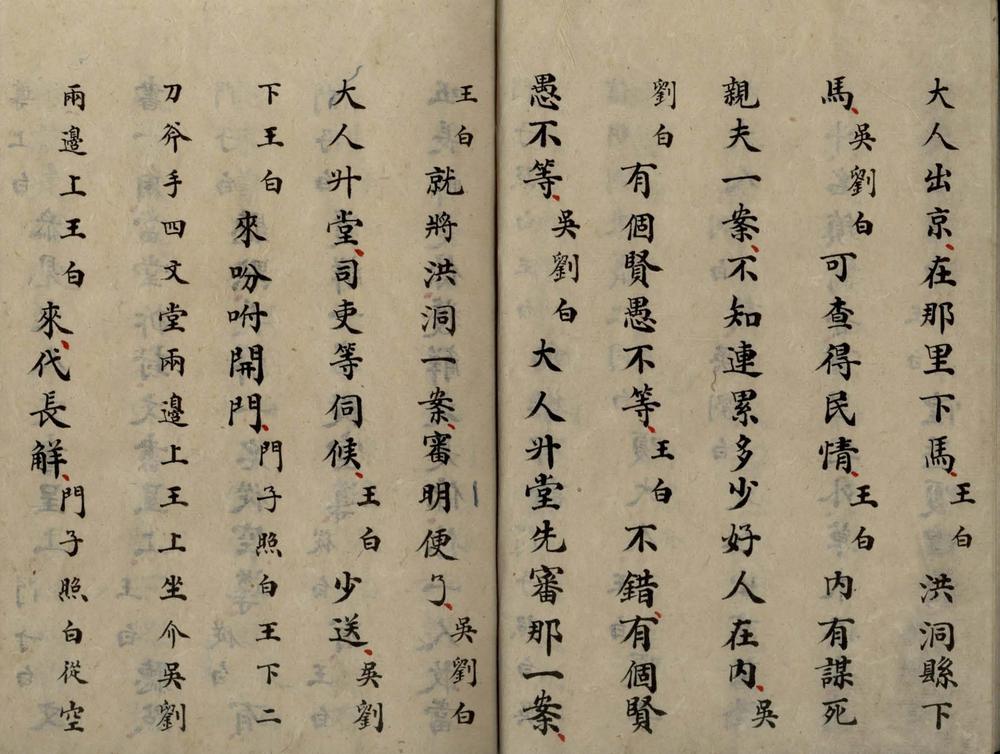 大人出京、在那里下馬、王白洪洞縣下
馬、吳劉白可查得民情、王白內有謀死
親夫一案、不知連累多少好人在內、吳
劉白有個賢愚不等、王白不錯、有個賢
愚不等、吳劉白大人廾堂先審那一案、
王白就將洪洞一案、審明便了、吳劉白
大人廾堂、司吏等伺候、王白少送、吳劉
下王白來吩咐開門、門子照白王下二
刀斧手四文堂兩邊上王上坐介吳劉
兩邊上王白來、代長解、門子照白從空